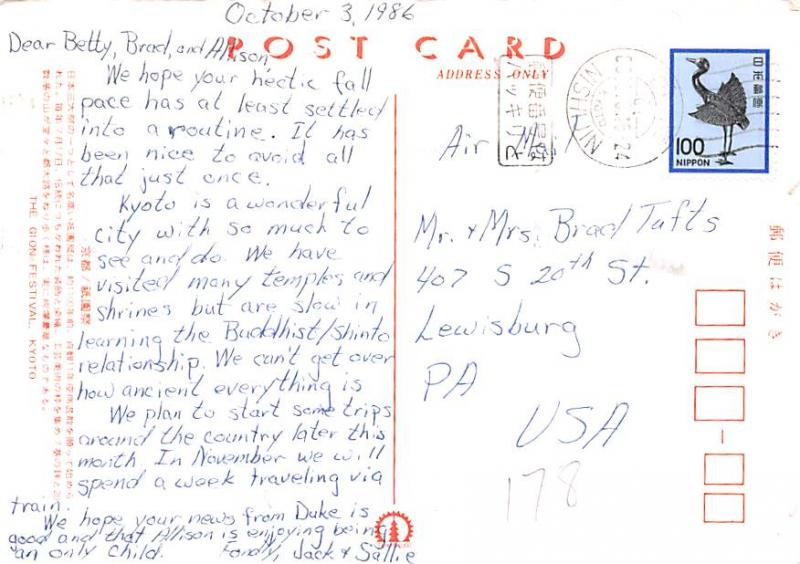 October 3, 1986
POST CARD
ADDRESS ONLY
Dear Betty, Brad, and Allison,
We hope your hectic fall
pace has at least settled
into a routine. It has
been nice to avoid all
that just once.
Kyoto is a wonderful
city with so much to
see and do. We have
visited many temples and
shrines but are slow in
learning the Buddhist/Shinto
relationship. We can't get over
how ancient everything is
We plan to start some trips
around the country later this
month. In November we will
spend a week traveling via
train.
We hope your news from Duke is
good and that Allison is enjoying being
an only child. Fondly, Jack & Sallie
Air Mail
Mr. & Mrs. Brad Tufts
407 S 20th St.
Lewisburg
PA
USA
178
日本郵便
100
NIPPON
NISHIJIN
郵便はがき
京都/祇園祭
THE GION-FESTIVAL, KYOTO